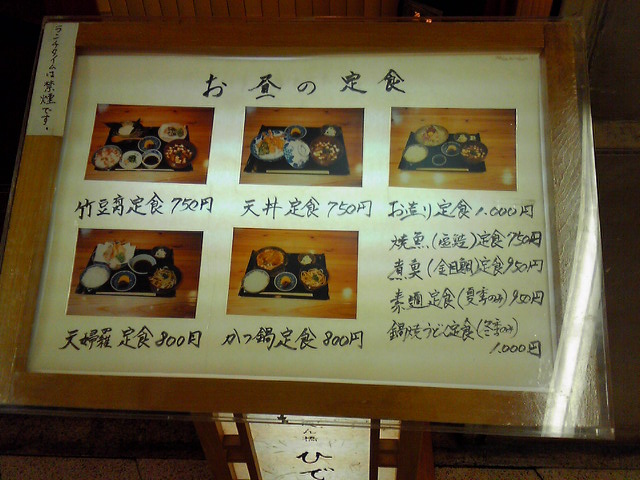 ランチタイムは禁煙です。
お昼の定食
竹豆腐定食 750円
天丼定食 750円
お造り定食 1.000円
焼魚(塩造)定食750円
煮魚(金目鯛)定食950円
素麺定食(夏季のみ)950円
天婦羅定食800円
かつ鍋定食800円
鍋焼うどん定食(冬季のみ)
1.000円
ひで